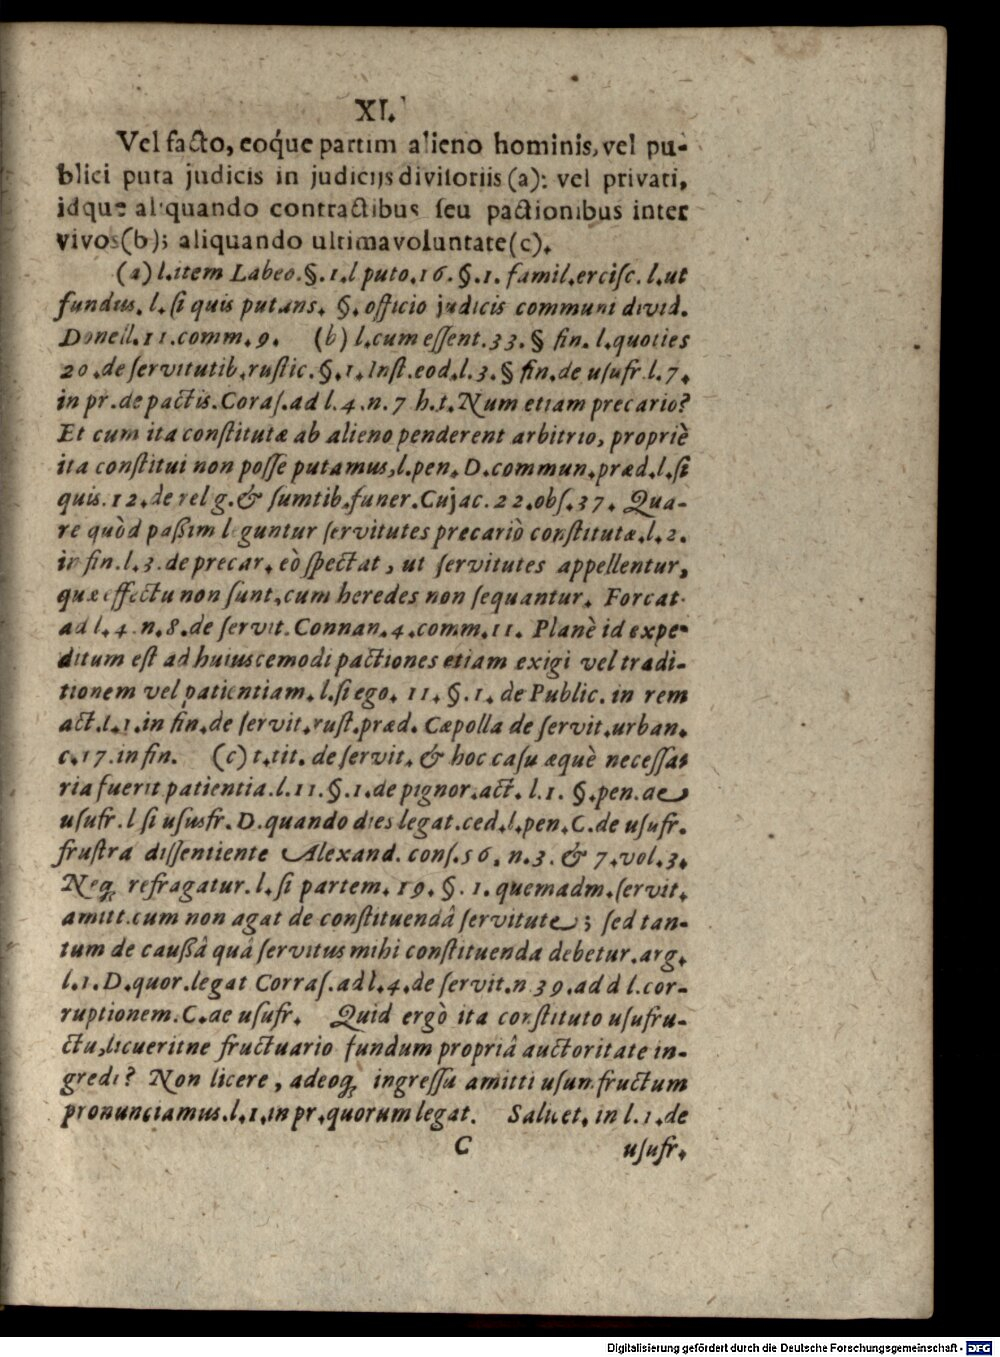 XI.
Vel facto, eoq́ue partim alieno hominis, vel pu-
blici puta judicis in judicijs divisoriis (a): vel privati,
idque aliquando contractibus seu pactionibus inter
vivos (b); aliquando ultima voluntate (c).
(a) l. item Labeo. §. 1. l puto. 16. §. 1. famil. ercisc. l. ut
fundus. l. si quis putans. §. officio judicis communi divid.
Donell. 11. comm. 9. (b) l. cum essent. 33. § fin. l. quoties
20. de servitutib. rustic. §. 1. Inst. eod. l. 3. § fin. de usufr. l. 7.
in pr. de pactis. Coras. ad l. 4. n. 7 h. t. Num etiam precario?
Et cum ita constitutæ ab alieno penderent arbitrio, propriè
ita constitui non posse putamus, l. pen. D. commun. præd. l. si
quis. 12. de relig. & sumtib. funer. Cujac. 22. obs. 37. Qua-
re quòd paßim leguntur servitutes precariò constitutæ. l. 2.
in fin. l. 3. de precar. eò spectat, ut servitutes appellentur,
quæ effectu non sunt, cum heredes non sequantur. Forcat.
ad l. 4. n. 8. de servit. Connan. 4. comm. 11. Planè id expe-
ditum est ad huiuscemodi pactiones etiam exigi vel tradi-
tionem vel patientiam. l. si ego. 11. §. 1. de Public. in rem
act. l. 1. in fin. de servit. rust. præd. Cæpolla de servit. urban.
c. 17. in fin. (c) t. tit. de servit. & hoc casu æquè necessa-
ria fuerit patientia. l. 11. §. 1. de pignor. act. l. 1. §. pen. de
usufr. l si ususfr. D. quando dies legat. ced. l. pen. C. de usufr.
frustra dissentiente Alexand. cons. 56. n. 3. & 7. vol. 3.
Neq; refragatur. l. si partem. 19. §. 1. quemadm. servit.
amitt. cum non agat de constituendâ servitute; sed tan-
tum de caußâ quâ servitus mihi constituenda debetur. arg.
l. 1. D. quor. legat Corras. ad l. 4. de servit. n 39. ad d l. cor-
ruptionem. C. de usufr. Quid ergò ita constituto usufru-
ctu, licueritne fructuario fundum propriâ auctoritate in-
gredi? Non licere, adeoq; ingressu amitti usumfructum
pronunciamus. l. 1. in pr. quorum legat. Salicet. in l. 1. de
C usufr.
Digitalisierung gefördert durch die Deutsche Forschungsgemeinschaft - DFG